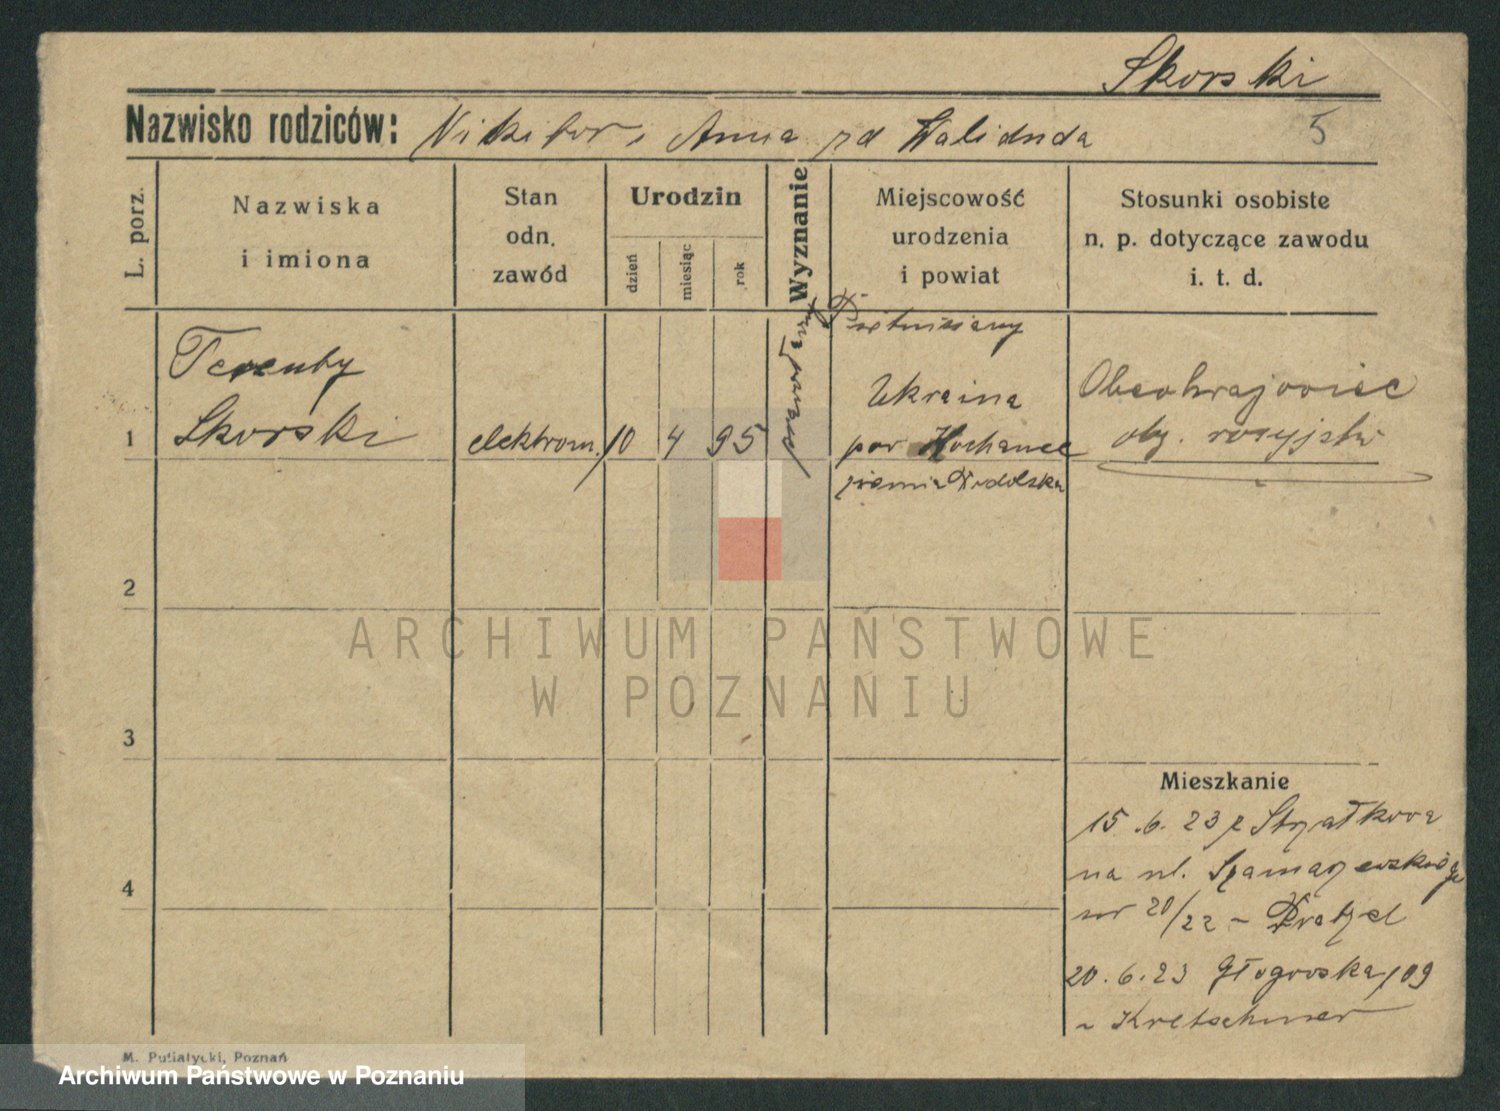 Skorski
Nazwisko rodziców: Nikifor i Anna zd Walidnda
5
L. porz.
Nazwiska
i imiona
Stan
odn.
zawód
Urodzin
dzień
miesiąc
rok
Wyznanie
Miejscowość
urodzenia
i powiat
Stosunki osobiste
n. p. dotyczące zawodu
i. t. d.
1
Terenty
Skorski
elektrom.
10
4
95
Ukraina
pow
ziemia Podolska
Obcokrajowiec
ob. rosyjski
2
3
4
Mieszkanie
15.6.23 z Strzałkowa
na ul. Szamarzewskiego
nr 20/22 - Pretzel
20.6.23 Głogowska 109
~ Kretschmer
M. Putiatycki, Poznań
ARCHIWUM PAŃSTWOWE
W POZNANIU
Archiwum Państwowe w Poznaniu